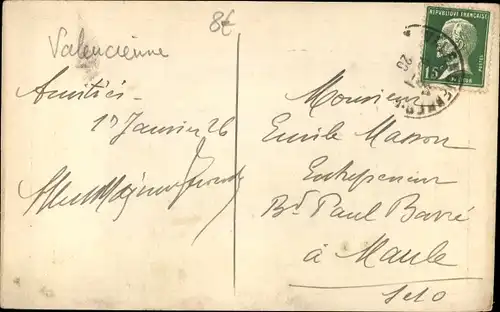 8€
Valencienne
Amitiés
17 Janvier 26
REPUBLIQUE FRANÇAISE
15c
POSTES
Monsieur
Emile Masson
Entrepreneur
Bd Paul Barré
à Maule
S et O